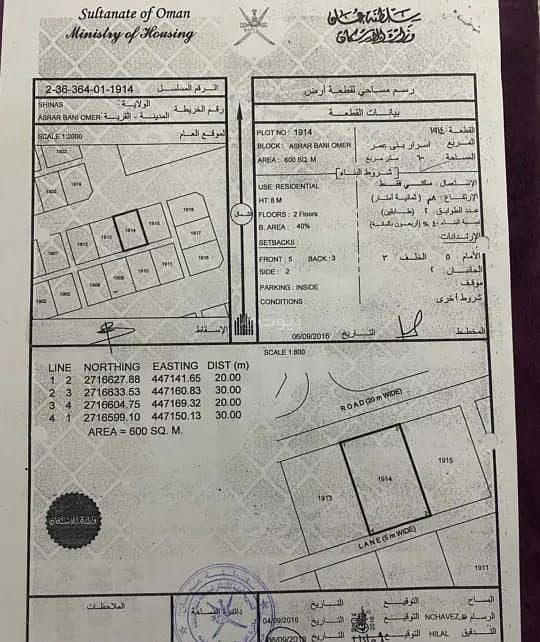 Sultanate of Oman
Ministry of Housing
سلطنة عمان
وزارة الإسكان
2-36-364-01-1914 الرقم المسلسل
SHINAS الولاية:
ASRAR BANI OMER المدينة - القرية: رقم الخريطة
SCALE 1:2000 الموقع العام
1922
1920
1919
1918
1912
1913
1914
1915
1916
1917
1908
1909
1910
1911
الشمال
الإسقاط
رسم مساحي لقطعة أرض
بيانات القطعة
PLOT NO : 1914 القطعة: ١٩١٤
BLOCK : ASRAR BANI OMER المربع اسرار بني عمر
AREA : 600 SQ. M المساحة ٦٠٠ متر مربع
شروط البناء
USE: RESIDENTIAL الإستعمال: سكني فقط
HT: 8 M الإرتفاع: ٨م (ثمانية امتار)
FLOORS : 2 Floors عدد الطوابق ٢ (طابقين)
B. AREA : 40% نسبة البناء: ٤٠% (اربعون بالمائة)
SETBACKS : الإرتدادات
FRONT : 5 BACK : 3 الأمام ٥ الخلف ٣
SIDE : 2 الجانبان ٢
PARKING : INSIDE موقف
CONDITIONS : شروط أخرى
06/09/2016 التاريخ المخطط
SCALE 1:800
LINE NORTHING EASTING DIST (m)
1 2 2716627.88 447141.65 20.00
2 3 2716633.53 447160.83 30.00
3 4 2716604.75 447169.32 20.00
4 1 2716599.10 447150.13 30.00
AREA = 600 SQ. M.
ROAD (20 m WIDE)
1913
1914
1915
LANE (6 m WIDE)
1911
وزارة الإسكان
الملاحظات
04/09/2016 التاريخ التوقيع المساح
التاريخ التوقيع NCHAVEZ الرسام
06/09/2016 التاريخ التوقيع HILAL التدقيق